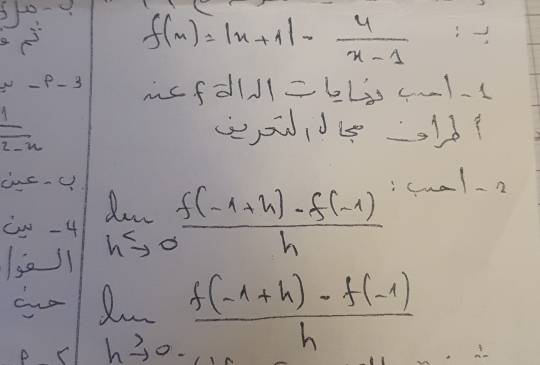 بـ : f(x) = |x+1| - \frac{4}{x-1}
1 - احسب نهايات الدالة f عند
أطراف مجال التعريف
2 - احسب :
\lim_{h \stackrel{<}{\to} 0} \frac{f(-1+h) - f(-1)}{h}
\lim_{h \stackrel{>}{\to} 0} \frac{f(-1+h) - f(-1)}{h}
3 - P -
\frac{1}{2-x}
ب - عين
4 - بين
حيث